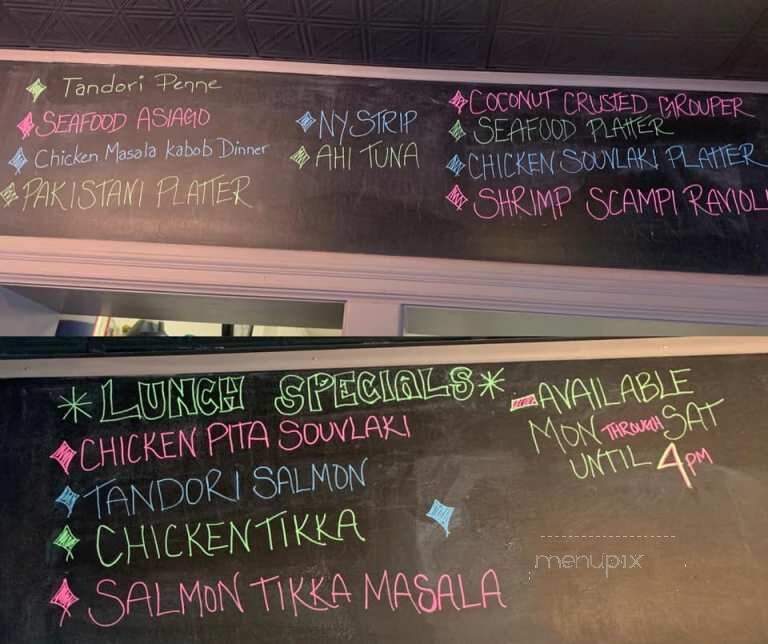 Tandori Penne
SEAFOOD ASIAGO
Chicken Masala Kabob Dinner
PAKISTANI PLATTER
NY STRIP
AHI TUNA
COCONUT CRUSTED GROUPER
SEAFOOD PLATTER
CHICKEN SOUVLAKI PLATTER
SHRIMP SCAMPI RAVIOLI
*LUNCH SPECIALS*
CHICKEN PITA SOUVLAKI
TANDORI SALMON
CHICKEN TIKKA
SALMON TIKKA MASALA
-AVAILABLE
MON THROUGH SAT
UNTIL 4PM
menupix